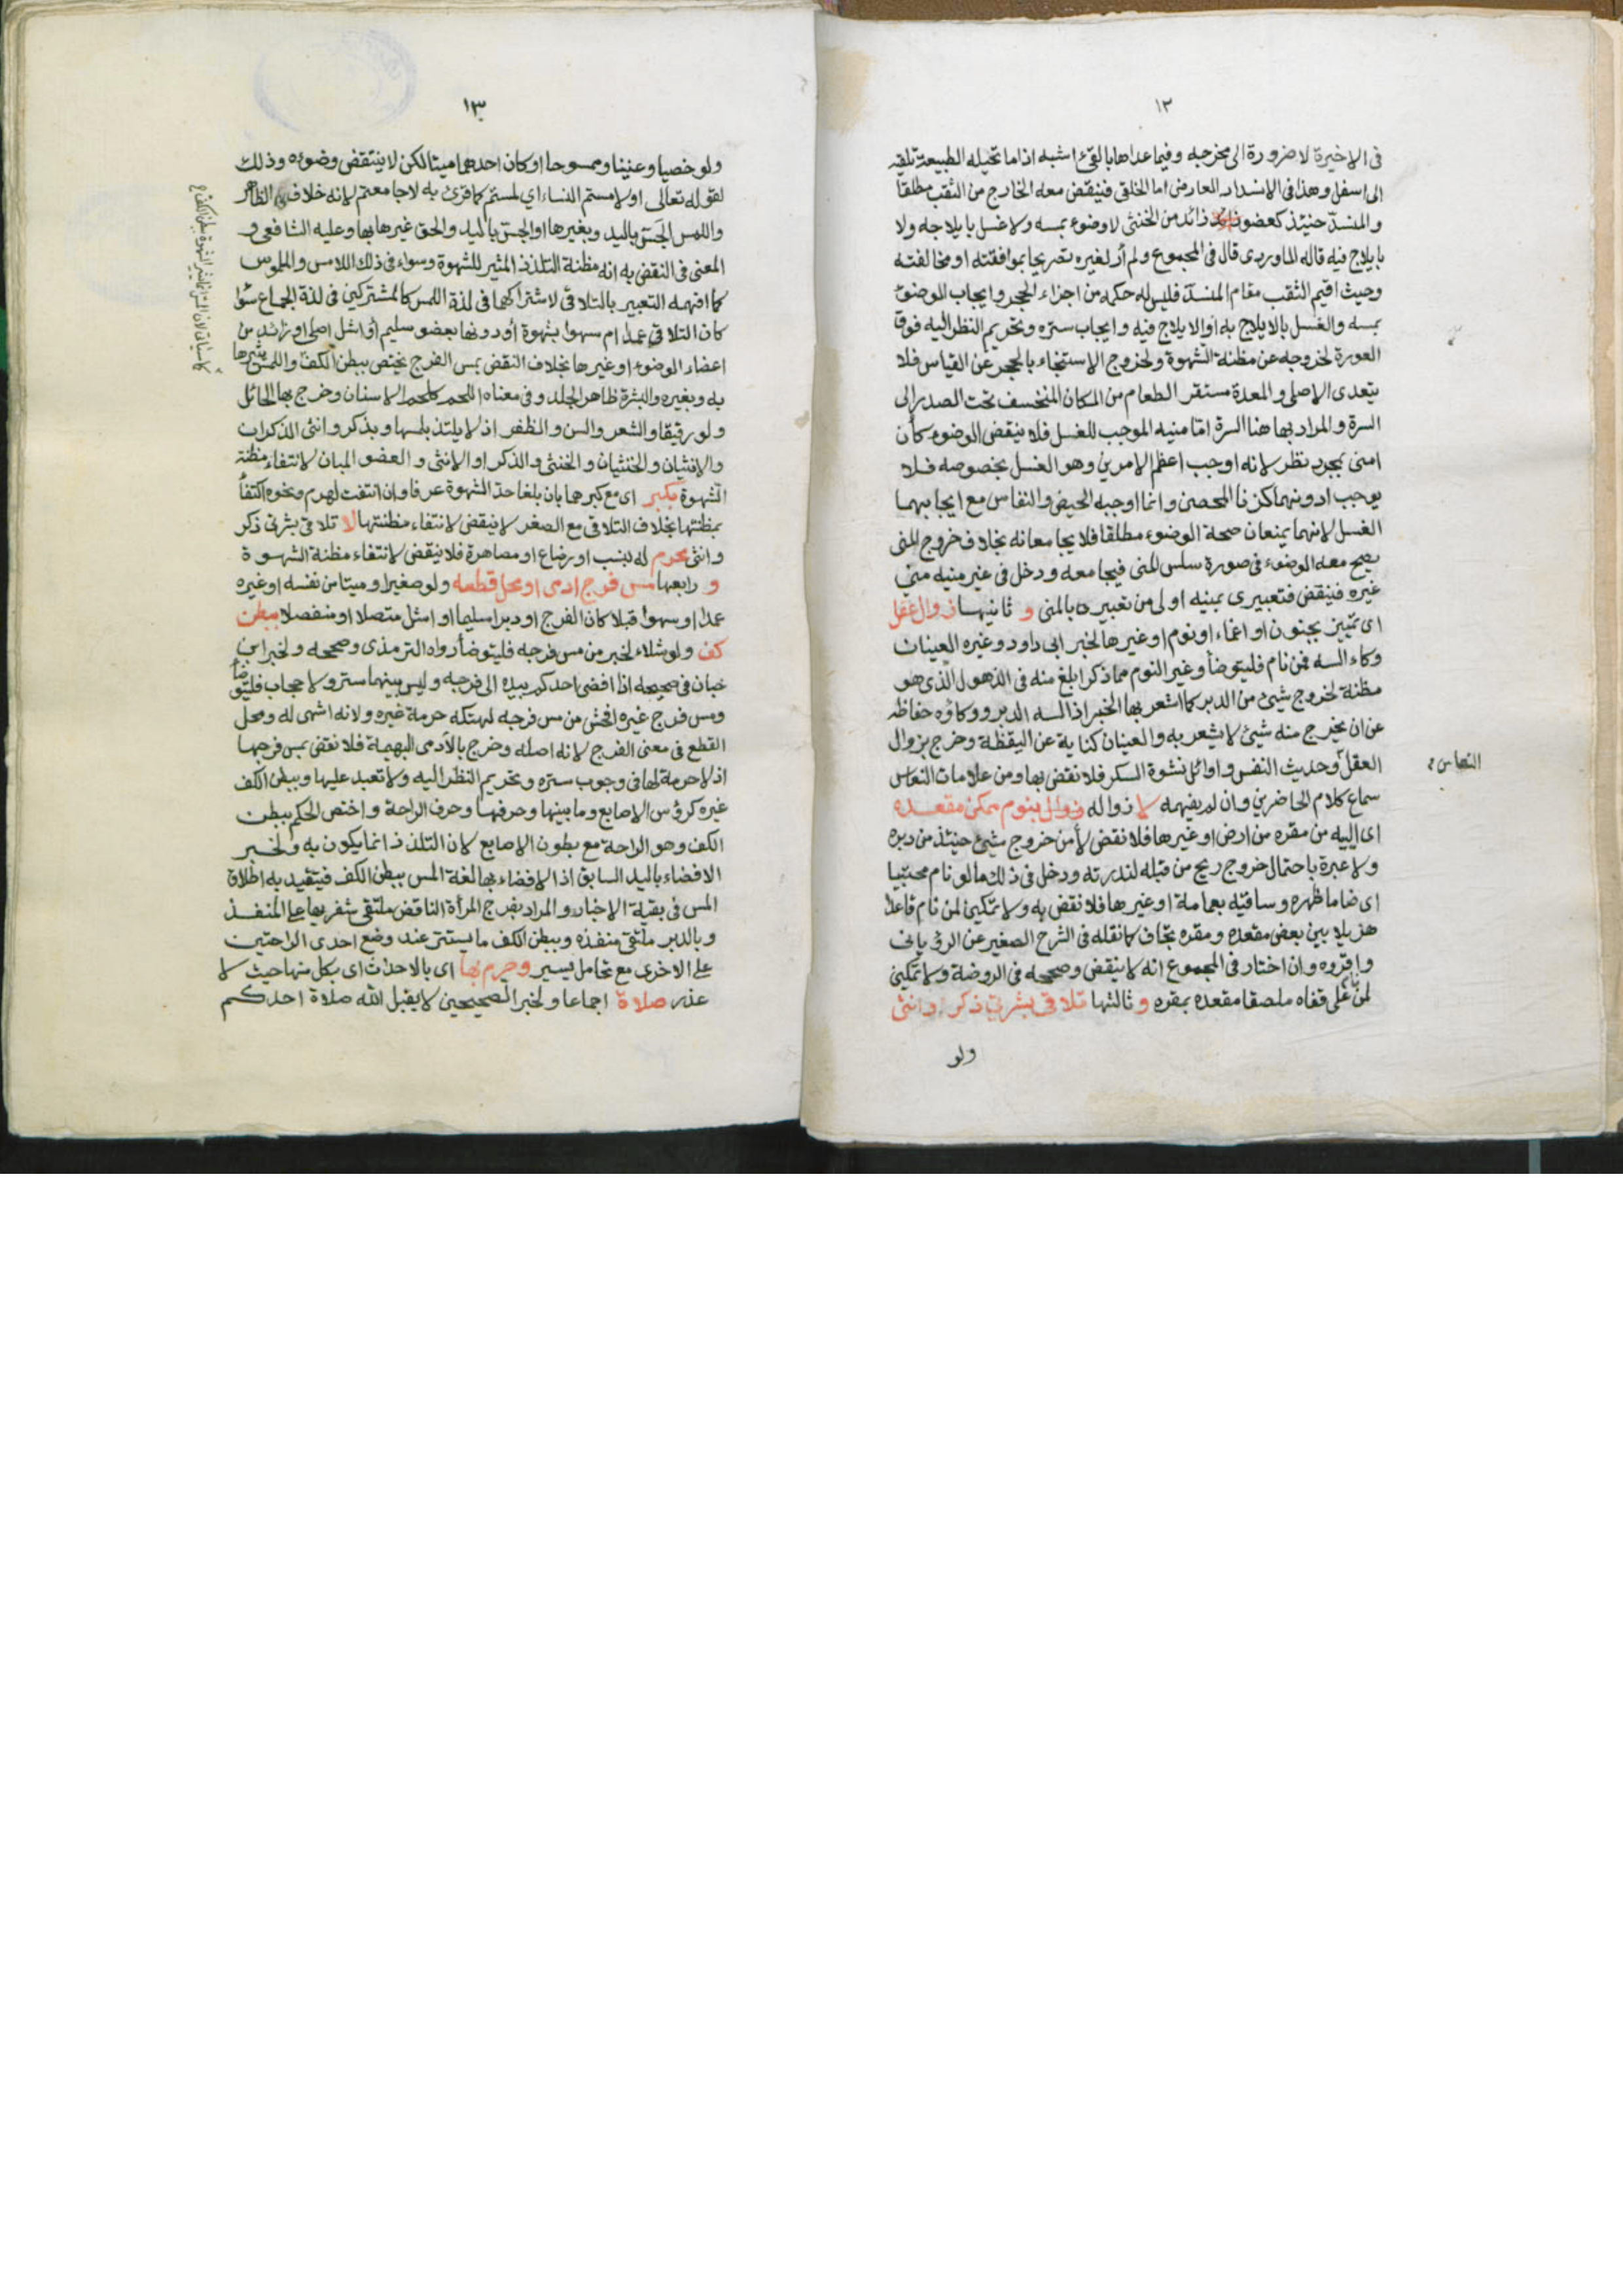 ١٢
فى الاخيرة لا ضرورة الى مخرجه وفيما عداها بالقئ اشبه اذ ما تحيله الطبيعة تلقيه
الى اسفل وهذا فى الانسداد العارض اما الخلقى فينقض معه الخارج من الثقب مطلقا
والمنسد حينئذ كعضو زائد من الخنثى لا وضوء بمسه ولا غسل بايلاجه ولا
بايلاج فيه قاله الماوردى قال فى المجموع ولم أر لغيره تصريحا بموافقته او مخالفته
وحيث اقيم الثقب مقام المنسد فليس له حكمه من اجزاء الحجر وايجاب الوضوء
بمسه والغسل بالايلاج به او الايلاج فيه وايجاب ستره وتحريم النظر اليه فوق
العورة لخروجه عن مظنة الشهوة ولخروج الاستنجاء بالحجر عن القياس فلا
يتعدى الاصلى والمعدة مستقر الطعام من المكان المنخسف تحت الصدر الى
السرة والمراد بها هنا السرة امّا منيه الموجب للغسل فلا ينقض الوضوء كأن
امنى بمجرد نظر لانه اوجب اعظم الامرين وهو الغسل بخصوصه فلا
يوجب ادونهما كزنا المحصن وانما اوجبه الحيض والنفاس مع ايجابهما
الغسل لانهما يمنعان صحة الوضوء مطلقا فلا يجامعانه بخلاف خروج المنى
يصح معه الوضوء فى صورة سلس المنى فيجامعه ودخل فى غير منيه منى
غيره فينقض فتعبيرى بمنيه اولى من تعبيره بالمنى و ثانيها زوال عقل
اى تمييز بجنون او اغماء او نوم او غيرها لخبر ابى داود وغيره العينان
وكاء السه فمن نام فليتوضأ وغير النوم مما ذكر ابلغ منه فى الذهول الّذى هو
مظنة لخروج شيئ من الدبر كما اشعر بها الخبر اذ السه الدبر ووكاؤه حفاظه
عن ان يخرج منه شيئ لا يشعر به والعينان كناية عن اليقظة وخرج بزوال
العقل وحديث النفس واوائل نشوة السكر فلا نقض بها ومن علامات النعاس
النعاس
سماع كلام الحاضرين وان لم يفهمه لا زواله بنوم ممكن مقعده
اى الييه من مقره من ارض او غيرها فلا نقض لأمن خروج شيئ حينئذ من دبره
ولا عبرة باحتمال خروج ريح من قبله لندرته ودخل فى ذلك ما لو نام محتبيا
اى ضاما ظهره وساقيه بعمامة او غيرها فلا نقض به ولا تمكين لمن نام قاعدا
هزيلا بين بعض مقعده ومقره تجاف كما نقله فى الشرح الصغير عن الرويانى
واقروه وان اختار فى المجموع انه لا ينقض وصححه فى الروضة ولا تمكين
لمن على قفاه ملصقا مقعده بمقره و ثالثها تلاقى بشرتى ذكر وانثى
ولو
١٣
ولو خصيا وعنينا وممسوحا او كان احدهما ميتا لكن لا ينتقض وضوءه وذلك
لقوله تعالى او لامستم النساء اي لمستم كما قرئ به لا جامعتم لانه خلاف الظاهر
واللمس الجَسّ باليد وبغيرها او الجسّ باليد والحق غيرها بها وعليه الشافعى و
المعنى فى النقض به انه مظنة التلذذ المثير للشهوة وسواء فى ذلك اللامس والملموس
كما افهمه التعبير بالتلاقى لاشتراكهما فى لذة اللمس كالمشتركين فى لذة الجماع سواء
كان التلاقى عمدا ام سهوا بشهوة أو دونها بعضو سليم أو اشل اصلى او زائد من
اعضاء الوضوء او غيرها بخلاف النقض بمس الفرج يختص ببطن الكف واللمس بشرها
كما سيأتى لان المس انما يثير الشهوة ببطن الكف
به وبغيره والبشرة ظاهر الجلد وفى معناه اللحم كلحم الاسنان وخرج بها الحائل
ولو رقيقا والشعر والسن والظفر اذ لا يلتذ بلمسها وبذكر وانثى الذكران
والانثيان والخنثيان والخنثى والذكر او الانثى والعضو المبان لانتفاء مظنة
الشهوة بكبر اى مع كبرهما بان بلغا حدّ الشهوة عرفا وان انتفت لهرم ونحوه اكتفأ
بمظنتها بخلاف التلاقى مع الصغر لا ينقض لانتفاء مظنتها لا تلاقى بشرتى ذكر
وانثى محرم له بنسب او رضاع او مصاهرة فلا ينقض لانتفاء مظنة الشهوة
و رابعها مس فرج ادمى او محل قطعه ولو صغيرا وميتا من نفسه او غيره
عمدا او سهوا قبلا كان الفرج او دبرا سليما او اشل متصلا او منفصلا ببطن
كف ولو شلاء لخبر من مس فرجه فليتوضأ رواه الترمذى وصححه ولخبر ابن
حبان فى صحيحه اذا افضى احدكم بيده الى فرجه وليس بينهما ستر ولا حجاب فليتوضأ
ومس فرج غيره افحش من مس فرجه لهتكه حرمة غيره ولانه اشهى له ومحل
القطع فى معنى الفرج لانه اصله وخرج بالآدمى البهيمة فلا نقض بمس فرجها
اذ لا حرمة لها فى وجوب ستره وتحريم النظر اليه ولا تعبد عليها وببطن الكف
غيره كرؤس الاصابع وما بينها وحرفها وحرف الراحة واختص الحكم ببطن
الكف وهو الراحة مع بطون الاصابع لان التلذذ انما يكون به ولخبر
الافضاء باليد السابق اذ الافضاء بها لغة المس ببطن الكف فيتقيد به اطلاق
المس فى بقية الاخبار والمراد بفرج المرأة الناقض ملتقى شفريها على المنفذ
وبالدبر ملتقى منفذه وببطن الكف ما يستتر عند وضع احدى الراحتين
على الاخرى مع تحامل يسير وحرم بها اى بالاحداث اى بكل منها حيث لا
عذر صلاة اجماعا ولخبر الصحيحين لا يقبل الله صلاة احدكم